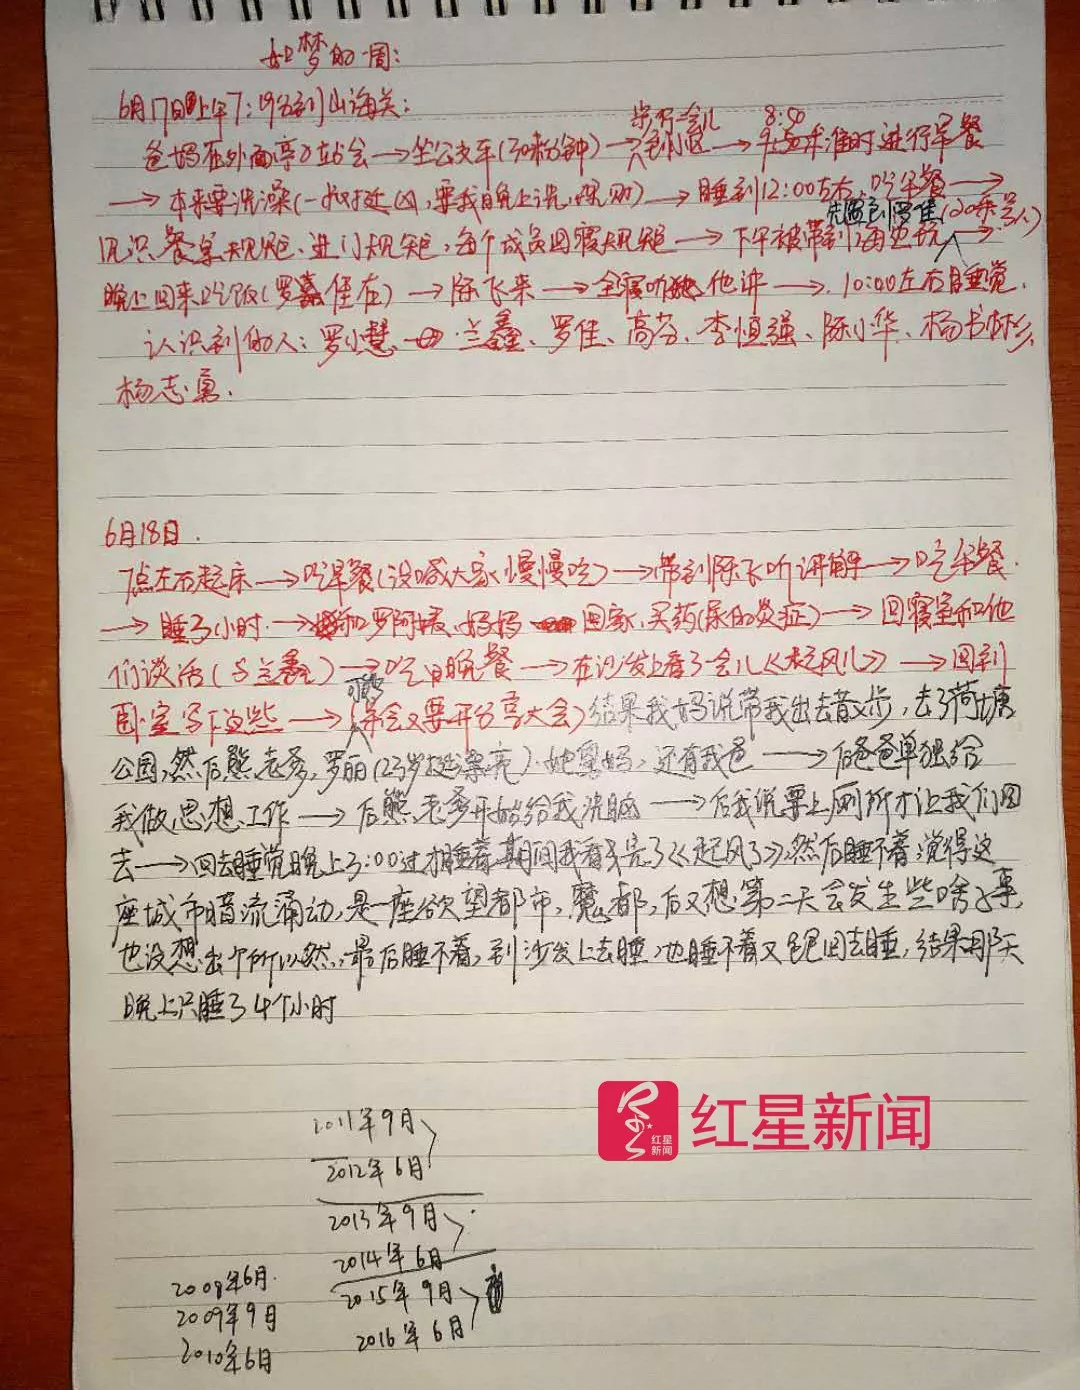 如梦的一周:
6月17日上午7:19分到山海关:
坐了一会儿 8:40
爸妈在外面亭子站会→坐公交车(30来分钟)→到小区→准时进行早餐
→本来要洗澡(一姐挺凶,要我晚上洗,)→睡到12:00左右,吃午餐→
先遇到罗佳(20来岁人)
见识餐桌规矩、进门规矩,每个成员回寝规矩→下午被带到海边玩→
晚上回来吃饭(罗佳在)→陈飞来→全寝听他讲→10:00左右睡觉.
认识到的人:罗小慧、兰鑫、罗佳、高芬、李恒强、陈小华、杨书林、
杨志勇.
6月18日.
7点左右起床→吃早餐(没喊大家慢慢吃)→带到陈飞听讲解→吃午餐.
→睡3小时.→和罗阿姨、妈妈回家,买药(尿的炎症)→回寝室和他
们谈话(与兰鑫)→吃晚餐→在沙发上看了一会儿《起风了》→回到
可能
卧室写下这些→(等会又要开分享大会)结果我妈说带我出去散步,去了荷塘
公园,然后熊老爹,罗丽(23岁挺漂亮).她舅妈,还有我爸→后爸爸单独给
我做思想工作→后熊老爹开始给我洗脑→后我说要上厕所才让我们回
去→回去睡觉晚上3:00过才睡着期间我看完了《起风了》,然后睡不着,觉得这
座城市暗流涌动,是一座欲望都市,魔都,后又想第二天会发生些啥子事,
也没想出个所以然,最后睡不着,到沙发上去睡,也睡不着又回去睡,结果那天
晚上只睡了4个小时
红星新闻
红星新闻
2011年9月
2012年6月
2013年9月
2014年6月
2015年9月
2016年6月
2008年6月.
2009年9月
2010年6月